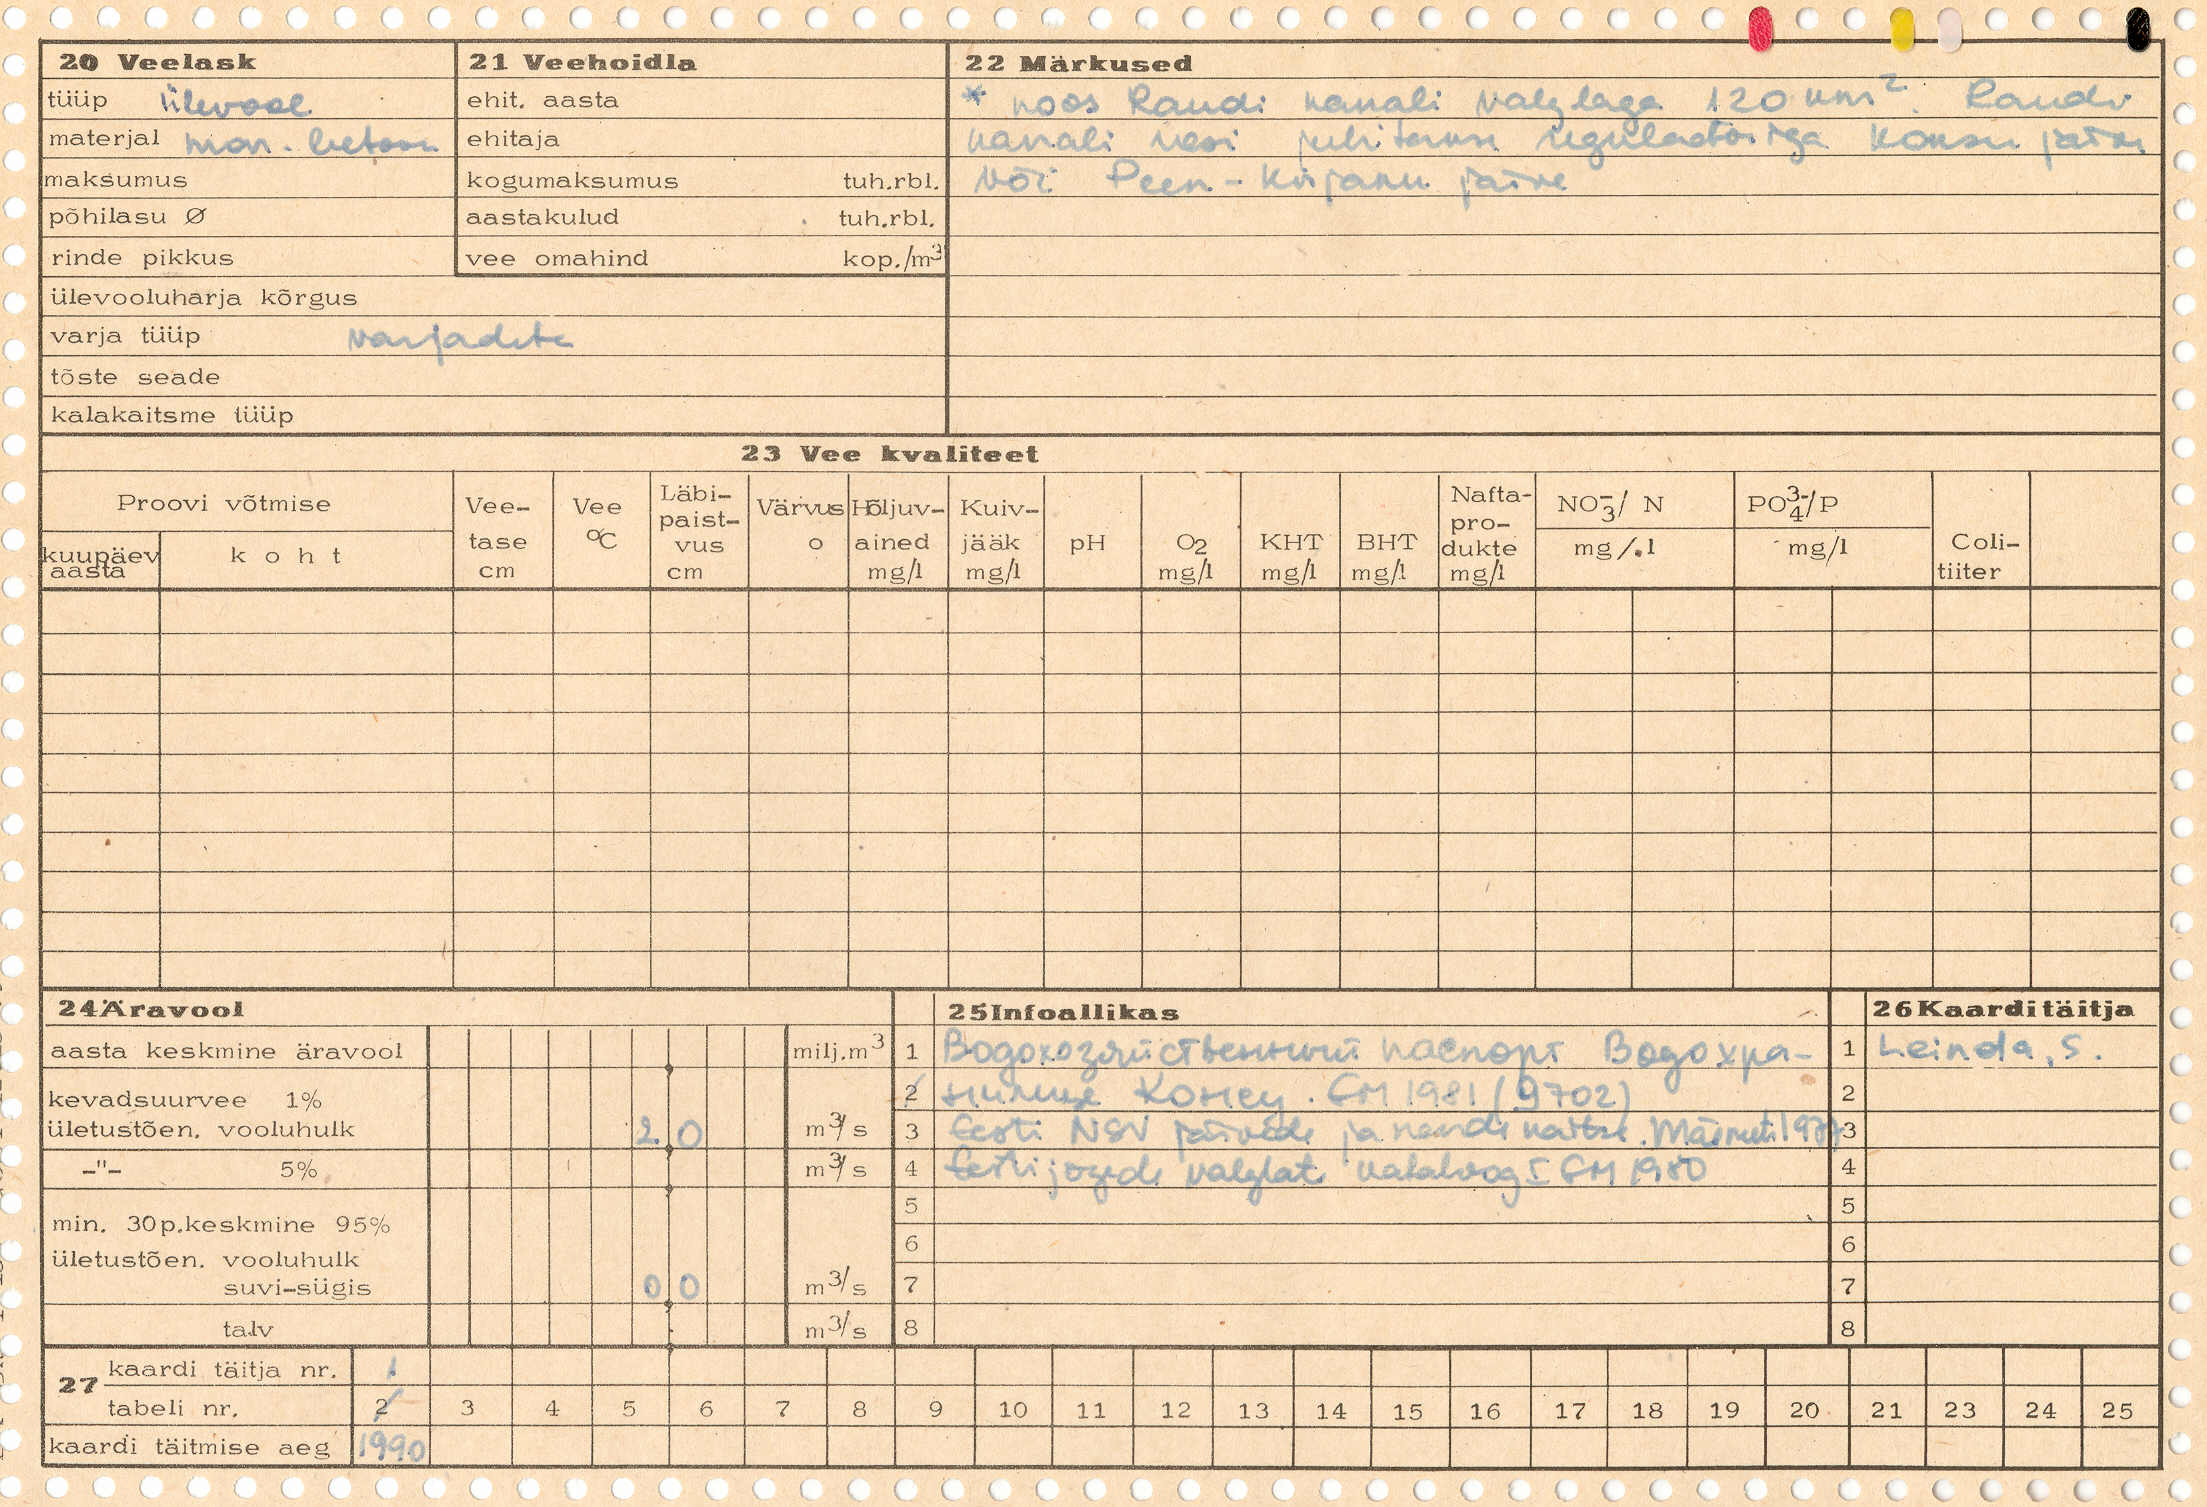 20 Veelask
tüüp ülevool
materjal mon. betoon
maksumus
põhilasu Ø
rinde pikkus
ülevooluharja kõrgus
varja tüüp varjadeta
tõste seade
kalakaitsme tüüp
21 Veehoidla
ehit. aasta
ehitaja
kogumaksumus tuh.rbl.
aastakulud tuh.rbl.
vee omahind kop./m³
22 Märkused
* koos Raudi kanali valglaga 120 km². Raudi
kanali vesi juhitakse regulaatoriga Konsu järve
või Peen-Kirjaku järve
23 Vee kvaliteet
Proovi võtmise
kuupäev aasta
koht
Vee-tase cm
Vee °C
Läbi-paist-vus cm
Värvus o
Hõljuv-ained mg/l
Kuiv-jääk mg/l
pH
O2 mg/l
KHT mg/l
BHT mg/l
Nafta-pro-dukte mg/l
NO3⁻/ N mg/l
PO4³⁻/P mg/l
Coli-tiiter
24 Äravool
aasta keskmine äravool milj.m³
kevadsuurvee 1%
ületustõen. vooluhulk 2.0 m³/s
-"- 5% m³/s
min. 30p.keskmine 95%
ületustõen. vooluhulk
suvi-sügis 0 0 m³/s
talv m³/s
25 Infoallikas
1 Водохозяйственный паспорт Водохра-
2 нилище Консу. EM 1981 (9702)
3 Eesti NSV järvede ja nende kaitse. Mäemets 1977
4 Eesti jõgede valglate kataloog I EM 1980
5
6
7
8
26 Kaarditäitja
1 Leinda, S.
2
3
4
5
6
7
8
27 kaardi täitja nr. 1
tabeli nr. 2 3 4 5 6 7 8 9 10 11 12 13 14 15 16 17 18 19 20 21 23 24 25
kaardi täitmise aeg 1990